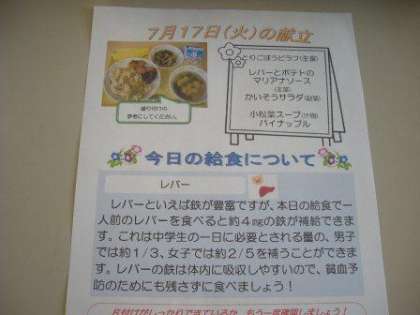 7月17日(火)の献立
とりごぼうピラフ(主食)
レバーとポテトの
マリアナソース
(主菜)
かいそうサラダ(副菜)
小松菜スープ(汁物)
パイナップル
盛り付けの
参考にしてください。
今日の給食について
レバー
レバーといえば鉄が豊富ですが、本日の給食で一
人前のレバーを食べると約4mgの鉄が補給できま
す。これは中学生の一日に必要とされる量の、男子
では約1/3、女子では約2/5を補うことができま
す。レバーの鉄は体内に吸収しやすいので、貧血予
防のためにも残さずに食べましょう!
片付けがしっかりできているか、もう一度確認しましょう!